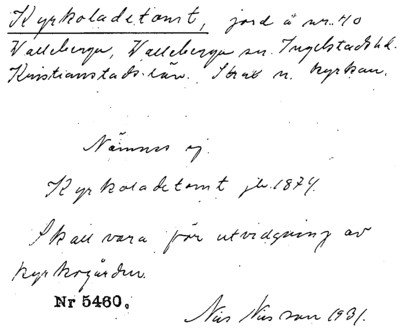 Kyrkoladetomt, jord å nr. 40
Valleberga, Valleberga sn. Ingelstads hd.
Kristianstads län. Strax n. kyrkan.
Nämnes ej.
Kyrkoladetomt jb. 1874.
Skall vara för utvidgning av
kyrkogården.
Nr 5460.
Nils Nilsson 1931.